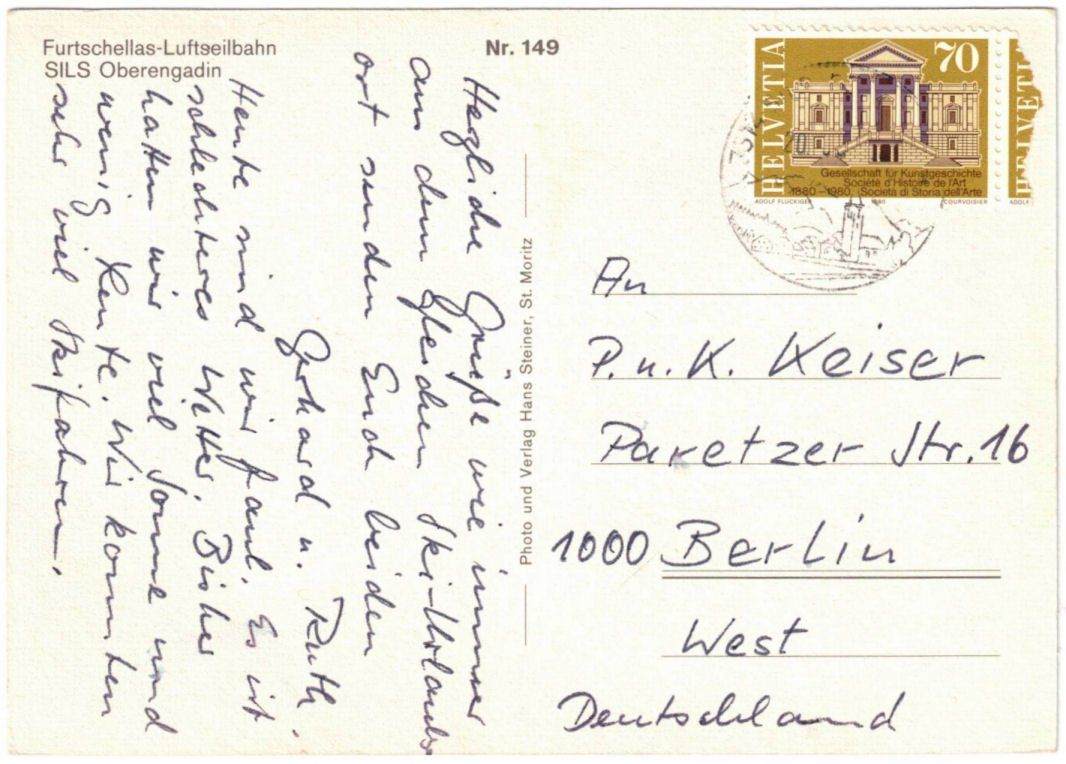 Furtschellas-Luftseilbahn
SILS Oberengadin
Nr. 149
Herzliche Grüße wie immer
aus dem gleichen Ski-Urlaubs
ort senden Euch beiden
Gerhard u. Ruth.
Heute sind wir faul. Es ist
schlechteres Wetter. Bisher
hatten wir viel Sonne und
wenig Leute. Wir konnten
sehr viel Skifahren.
Photo und Verlag Hans Steiner, St. Moritz
HELVETIA
70
Gesellschaft für Kunstgeschichte
Société d'Histoire de l'Art
1880–1980 Società di Storia dell'Arte
ADOLF FLÜCKIGER 1980 COURVOISIER
HELVETIA
ADOLF
An
P. u. K. Keiser
Paretzer Str. 16
1000 Berlin
West
Deutschland